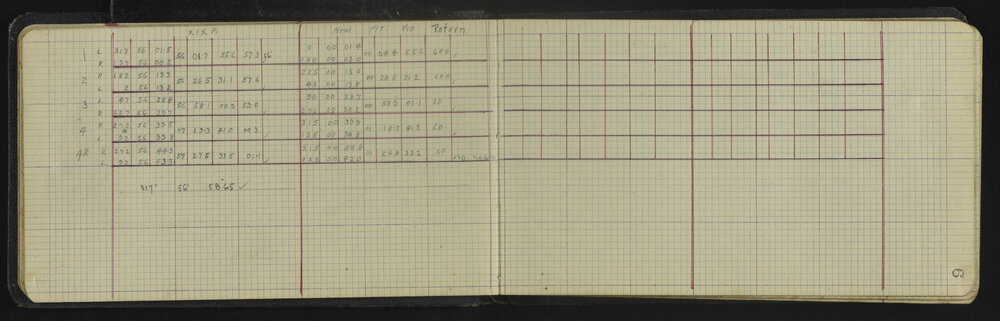 XIXA New Mt. Vic Return
1 L 317 56 01.5 56 01.7 55.6 57.3 56 0 00 01.4 00 04.4 55.6 60.0 ✓
R 137 56 00.2 180 00 03.0
2 R 182 56 13.3 56 26.5 31.1 57.6 225 00 15.0 00 28.8 31.2 60.0 ✓
L 2 56 13.2 45 00 13.8
3 L 47 56 28.4 56 58.1 00.9 59.0 90 00 28.7 00 58.9 01.1 60
R 227 56 29.7 270 00 30.2
4 R 272 56 39.5 57 19.3 41.0 00.3 315 00 39.9 01 18.7 41.3 60
L 92 56 39.8 135 00 38.8 ✓
4R R 272 56 44.3 57 27.6 33.5 01.1 315 00 44.8 01 26.8 33.2 60
L 92 56 43.3 135 00 42.0
317° 56' 58".65 ✓
9